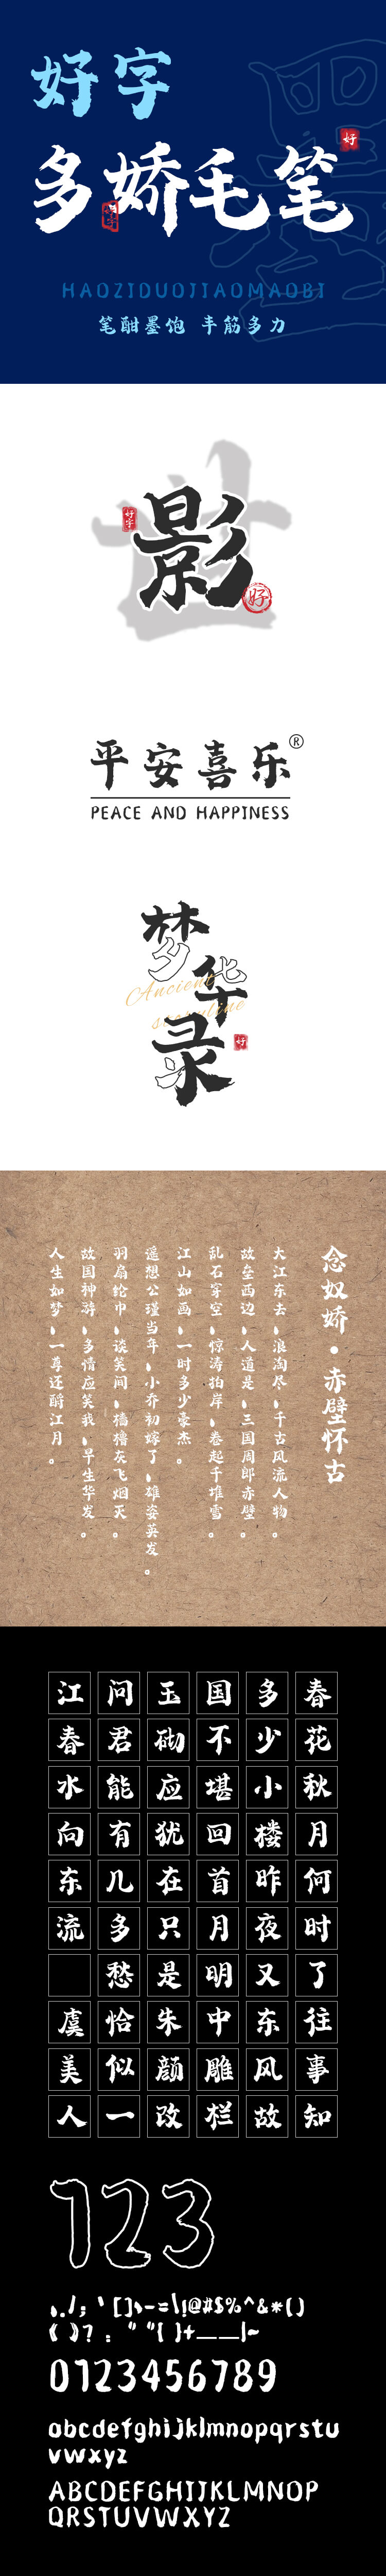 好字
好
多娇毛笔
好字
HAOZIDUOJIAOMAOBI
笔酣墨饱 丰筋多力
好字
影
好
平安喜乐
®
PEACE AND HAPPINESS
梦华录
Ancient
storyline
好
念奴娇·赤壁怀古
大江东去,浪淘尽,千古风流人物。
故垒西边,人道是,三国周郎赤壁。
乱石穿空,惊涛拍岸,卷起千堆雪。
江山如画,一时多少豪杰。
遥想公瑾当年,小乔初嫁了,雄姿英发。
羽扇纶巾,谈笑间,樯橹灰飞烟灭。
故国神游,多情应笑我,早生华发。
人生如梦,一尊还酹江月。
春花秋月何时了往事知
多少小楼昨夜又东风故
国不堪回首月明中雕栏
玉砌应犹在只是朱颜改
问君能有几多愁恰似一
江春水向东流 虞美人
123
,./;'[]、-=\!@#$%^&*()
《》?:""{}+——|~
0123456789
abcdefghijklmnopqrstu
vwxyz
ABCDEFGHIJKLMNOP
QRSTUVWXYZ